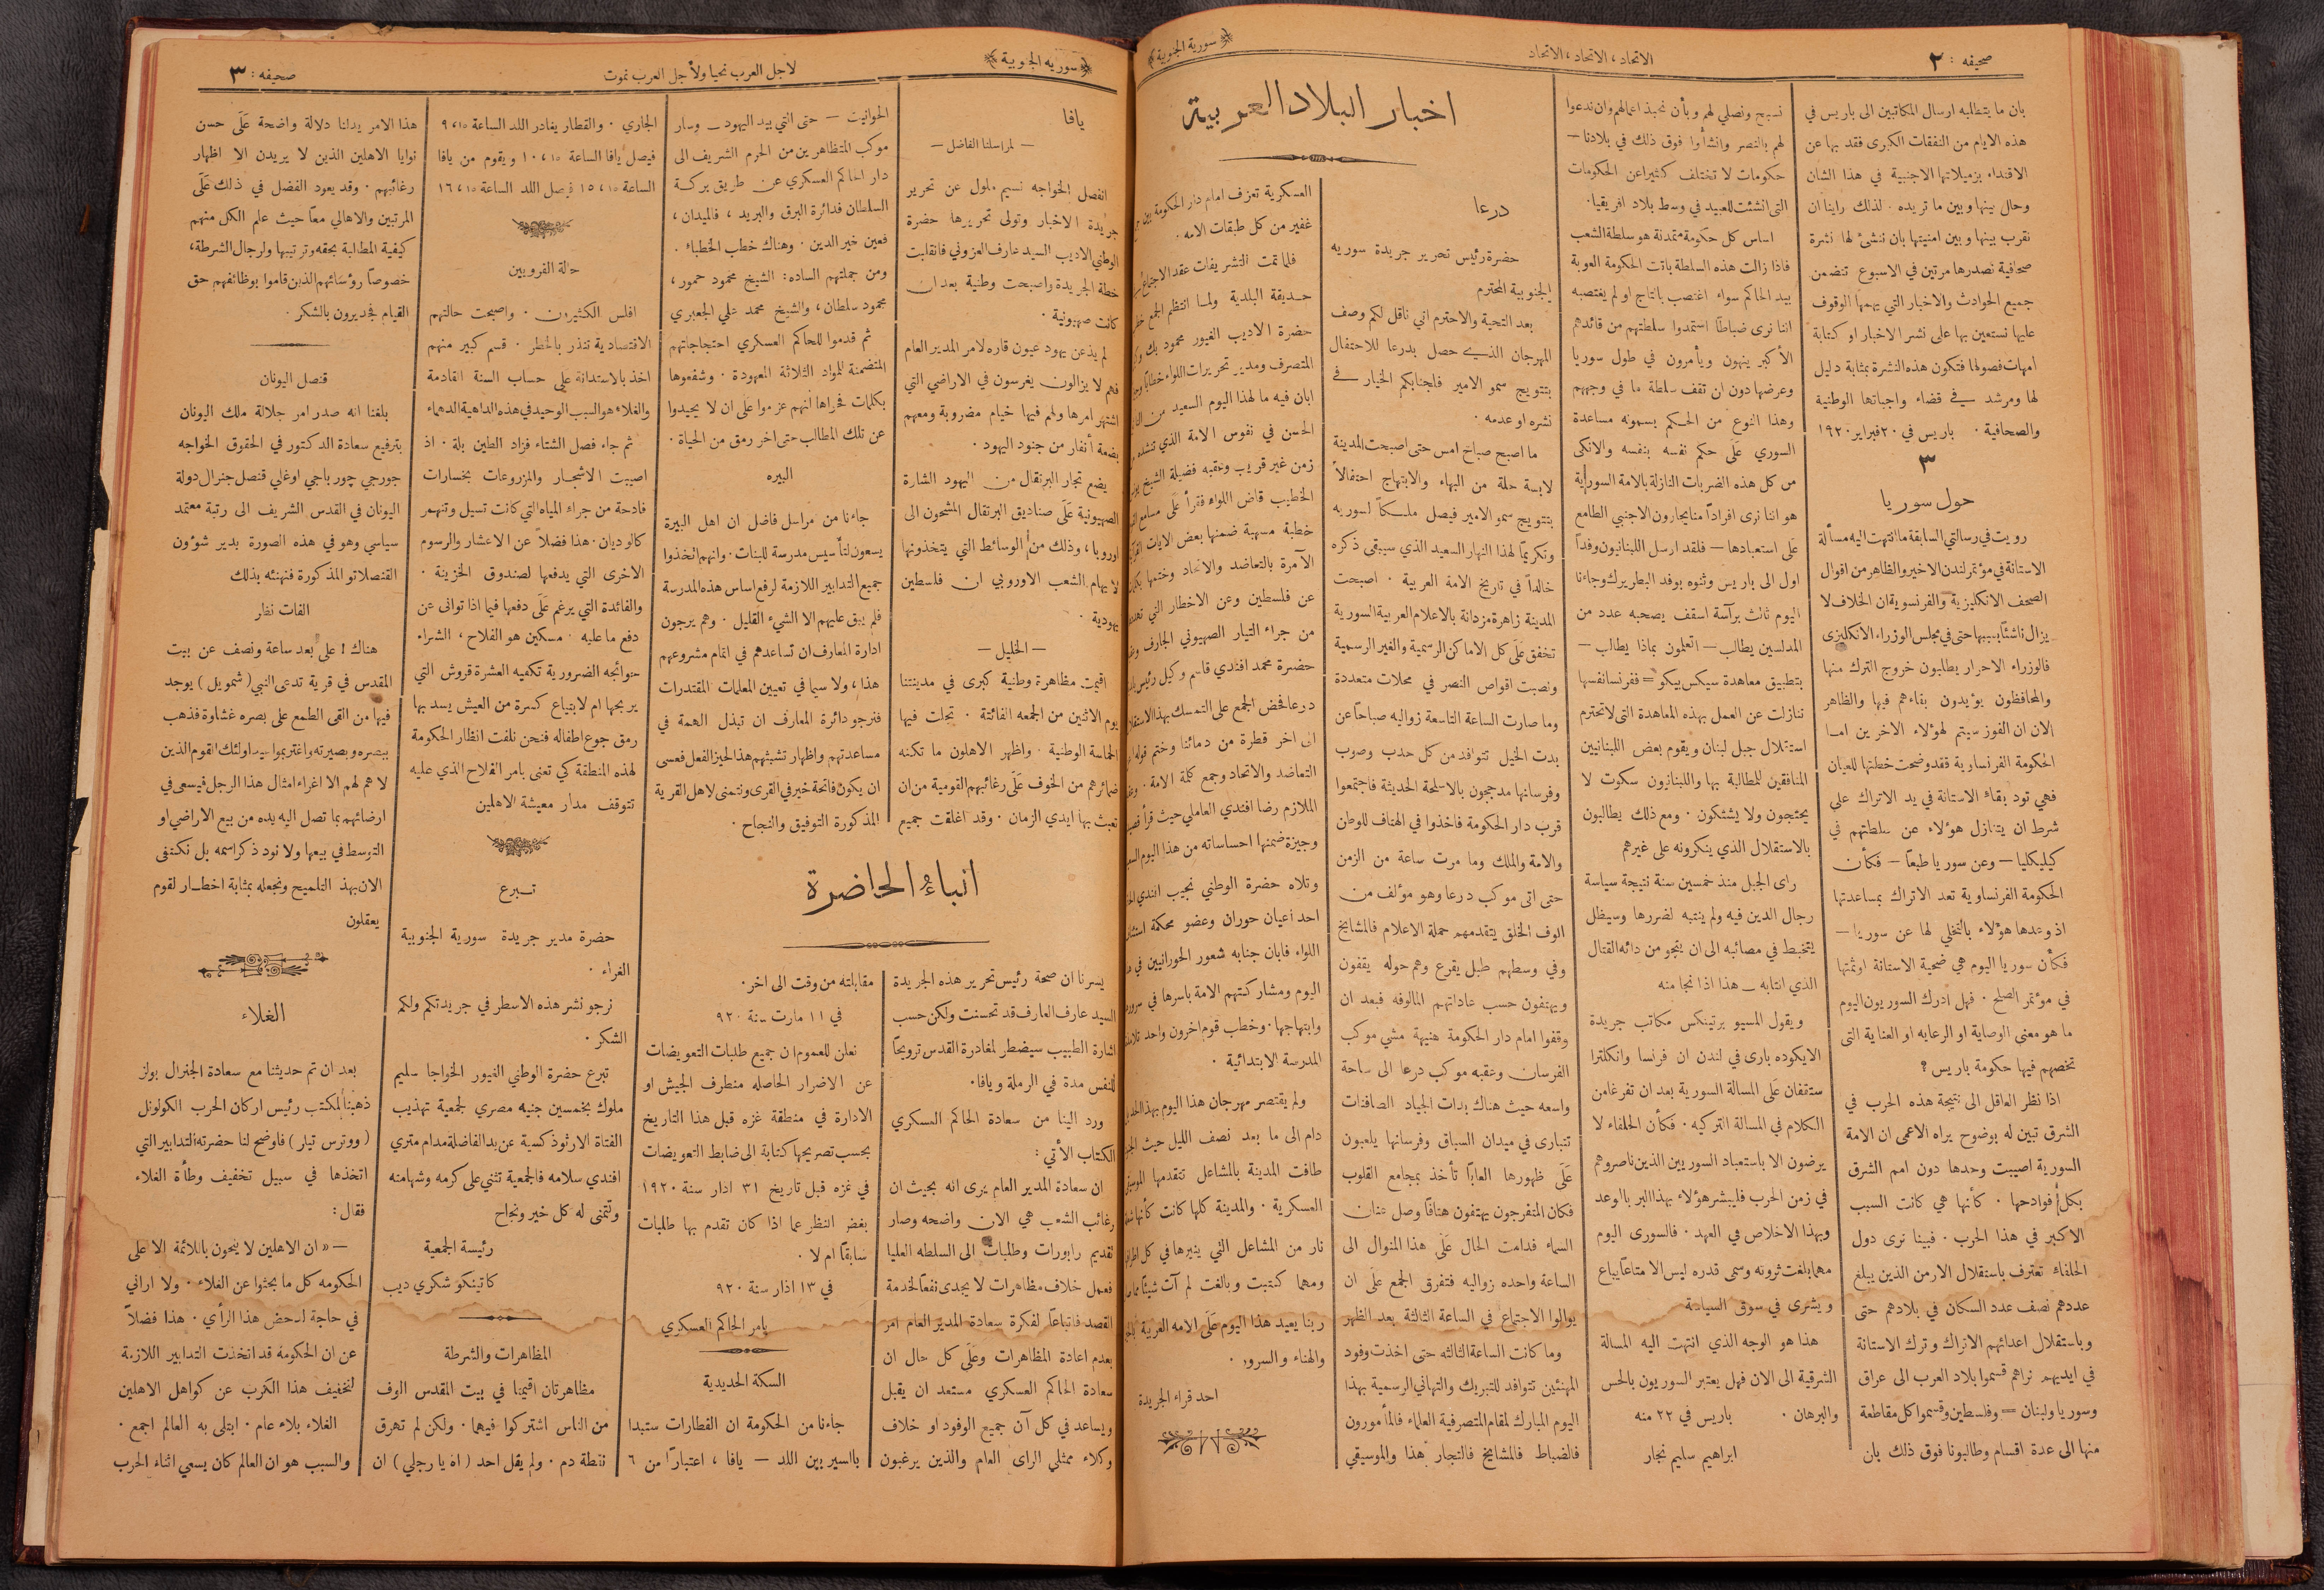 صحيفه : ٢
الاتحاد ، الاتحاد ، الاتحاد
سورية الجنوبية
بان ما يتطلبه ارسال المكاتبين الى باريس في
هذه الايام من النفقات الكبرى فقد بها عن
الاقتداء بزميلاتها الاجنبية في هذا الشان
وحال بينها وبين ما تريده . لذلك راينا ان
نقرب بينها وبين امنيتها بان ننشئ لها نشرة
صحافية نصدرها مرتين في الاسبوع تتضمن
جميع الحوادث والاخبار التي يهمها الوقوف
عليها نستعين بها على نشر الاخبار او كتابة
امهات فصولها فتكون هذه النشرة بمثابة دليل
لها ومرشد في قضاء واجباتها الوطنية
والصحافية . باريس في ٢٠ فبراير ١٩٢٠
٣
حول سوريا
رويت في رسالتي السابقة ما انتهت اليه مسألة
الاستانة في مؤتمر لندن الاخير والظاهر من اقوال
الصحف الانكليزية والفرنسوية ان الخلاف لا
يزال ناشئًا بسببها حتى في مجلس الوزراء الانكليزى
فالوزراء الاحرار يطلبون خروج الترك منها
والمحافظون يؤيدون بقاءهم فيها والظاهر
الان ان الفوز سيتم لهؤلاء الاخرين اما
الحكومة الفرنساوية فقد وضحت خطتها للعيان
فهي تود بقاء الاستانة في يد الاتراك على
شرط ان يتنازل هؤلاء عن سلطتهم في
كيليكيا — وعن سوريا طبعاً — فكأن
الحكومة الفرنساوية تعد الاتراك بمساعدتها
اذ وعدها هؤلاء بالتخلي لها عن سوريا —
فكأن سوريا اليوم هي ضحية الاستانة او ثمنها
في مؤتمر الصلح . فهل ادرك السوريون اليوم
ما هو معنى الوصاية او الرعايه او العناية التى
تخصهم فيها حكومة باريس ؟
اذا نظر العاقل الى نتيجة هذه الحرب في
الشرق تبين له بوضوح يراه الاعمى ان الامة
السورية اصيبت وحدها دون امم الشرق
بكل فوادحها . كأنها هي كانت السبب
الاكبر في هذا الحرب . فبينا نرى دول
الحلفاء تعترف باستقلال الارمن الذين يبلغ
عددهم نصف عدد السكان في بلادهم حتى
وباستقلال اعدائهم الاتراك وترك الاستانة
في ايديهم نراهم قسموا بلاد العرب الى عراق
وسوريا ولبنان = وفلسطين وقسموا كل مقاطعة
منها الى عدة اقسام وطالبونا فوق ذلك بان
نسبح ونصلي لهم وبأن نحبذ اعمالهم وان ندعوا
لهم بالنصر وانشأوا فوق ذلك في بلادنا —
حكومات لا تختلف كثيرا عن الحكومات
التى انشئت للعبيد في وسط بلاد افريقيا .
اساس كل حكومة متمدنة هو سلطة الشعب
فاذا زالت هذه السلطة باتت الحكومة العوبة
بيد الحاكم سواء اغتصب بالتاج او لم يغتصبه
اننا نرى ضباطًا استمدوا سلطتهم من قائدهم
الأكبر ينهون ويأمرون في طول سوريا
وعرضها دون ان تقف سلطة ما في وجههم
وهذا النوع من الحكم يسمونه مساعدة
السوري على حكم نفسه بنفسه والانكى
من كل هذه الضربات النازلة بالامة السوراية
هو اننا نرى افراداً منا يجارون الاجنبي الطامع
على استعبادها — فلقد ارسل اللبنانيون وفداً
اول الى باريس وثنوه بوفد البطريرك وجاءنا
اليوم ثالث برآسة اسقف يصحبه عدد من
المدلسين يطالب — اتعلمون بماذا يطالب —
بتطبيق معاهدة سيكس بيكو = ففرنسا نفسها
تنازلت عن العمل بهذه المعاهدة التى لا تحترم
استقلال جبل لبنان ويقوم بعض اللبنانيين
المنافقين للمطالبة بها واللبنانيون سكوت لا
يحتجون ولا يشتكون . ومع ذلك يطالبون
بالاستقلال الذي ينكرونه على غيرهم
راى الجبل منذ خمسين سنة نتيجة سياسة
رجال الدين فيه ولم ينتبه لضررها وسيظل
يتخبط في مصائبه الى ان ينجو من دائه القتال
الذي انتابه — هذا اذا نجا منه
ويقول المسيو برتينكس مكاتب جريدة
الايكوده بارى في لندن ان فرنسا وانكلترا
ستتفقان على المسالة السورية بعد ان تفرغا من
الكلام في المسالة التركيه . فكأن الحلفاء لا
يرضون الا باستعباد السوريين الذين ناصروهم
في زمن الحرب فليبشر هؤلاء بهذا البر بالوعد
وبهذا الاخلاص في العهد . فالسورى اليوم
مهما بلغت ثروته وسمى قدره ليس الا متاعاً يباع
ويشرى في سوق السياسة
هذا هو الوجه الذي انتهت اليه المسالة
الشرقية الى الان فهل يعتبر السوريون بالحس
والبرهان . باريس في ٢٢ منه
ابراهيم سليم نجار
اخبار البلاد العربية
درعا
حضرة رئيس تحرير جريدة سوريه
الجنوبية المحترم
بعد التحية والاحترم اني ناقل لكم وصف
المهرجان الذي حصل بدرعا للاحتفال
بتتويج سمو الامير فلجنابكم الخيار في
نشره او عدمه .
ما اصبح صباح امس حتى اصبحت المدينة
لابسة حلة من البهاء والابتهاج احتفالاً
بتتويج سمو الامير فيصل ملكاً لسوريه
وتكريماً لهذا النهار السعيد الذي سيبقى ذكره
خالداً في تاريخ الامة العربية . اصبحت
المدينة زاهرة مزدانة بالاعلام العربية السورية
تخفق على كل الاماكن الرسمية والغير الرسمية
ونصبت اقواص النصر في محلات متعددة
وما صارت الساعة التاسعة زواليه صباحاً عن
بدت الخيل تتوافد من كل حدب وصوب
وفرسانها مدججون بالاسلحة الحديثة فاجتمعوا
قرب دار الحكومة فاخذوا في الهتاف للوطن
والامة والملك وما مرت ساعة من الزمن
حتى اتى موكب درعا وهو مؤلف من
الوف الخلق يتقدمهم حملة الاعلام فالمشايخ
وفي وسطهم طبل يقرع وهم حوله يقفون
ويهتفون حسب عاداتهم المالوفه فبعد ان
وقفوا امام دار الحكومة هنيهة مشي موكب
الفرسان وعقبه موكب درعا الى ساحة
واسعه حيث هناك بدات الجياد الصافنات
تتبارى في ميدان السباق وفرسانها يلعبون
على ظهورها العابًا تأخذ بمجامع القلوب
فكان المتفرجون يهتفون هتافاً وصل عنان
السماء فدامت الحال على هذا المنوال الى
الساعة واحده زواليه فتفرق الجمع على ان
يوالوا الاجتماع في الساعة الثالثة بعد الظهر
وما كانت الساعة الثالثه حتى اخذت وفود
المهنئين تتوافد للتبريك والتهاني الرسمية بهذا
اليوم المبارك لمقام المتصرفية العلماء فالمأمورون
فالضباط فالمشايخ فالتجار هذا والموسيقي
العسكرية تعزف امام دار الحكومة بين
غفير من كل طبقات الامه .
فلما تمت التشريفات عقد الاجتماع
حديقة البلدية ولما انتظم الجمع
حضرة الاديب الغيور محمود بك
المتصرف ومدير تحريرات اللواء خطابًا
ابان فيه ما لهذا اليوم السعيد من
الحسن في نفوس الامة الذي تنشده
زمن غير قريب وعقبه فضيلة الشيخ
الخطيب قاض اللواء فقرأ على مسامع
خطبة مسهبة ضمنها بعض الايات
الآمرة بالتعاضد والاتحاد وختمها
عن فلسطين وعن الاخطار التي
من جراء التيار الصهيوني الجارف
حضرة محمد افندي قاسم وكيل رئيس
درعا فحض الجمع على التمسك بهذا
الى اخر قطرة من دمائنا وختم قوله
التعاضد والاتحاد وجمع كلمة الامة .
الملازم رضا افندي العاملي حيث قرأ
وجيزة ضمنها احساساته من هذا اليوم
وتلاه حضرة الوطني نجيب افندي
احد اعيان حوران وعضو محكمة
اللواء فابان جنابه شعور الحورانيين في
اليوم ومشاركتهم الامة باسرها في
وابتهاجها . وخطب قوم اخرون واحد
المدرسة الابتدائية .
ولم يقتصر مهرجان هذا اليوم بهذا
دام الى ما بعد نصف الليل حيث
طافت المدينة بالمشاعل تتقدمها
العسكرية . والمدينة كلها كانت كأنها
نار من المشاعل التي ينيرها في كل
ومهما كتبت وبالغت لم آت شيئًا
ربنا يعيد هذا اليوم على الامه العربية
والهناء والسرور .
احد قراء الجريدة
سوريه الجنوبية
لاجل العرب نحيا ولأجل العرب نموت
صحيفه : ٣
يافا
— لمراسلنا الفاضل —
انفصل الخواجه نسيم ملول عن تحرير
جريدة الاخبار وتولى تحريرها حضرة
الوطني الاديب السيد عارف العزوني فانقلبت
خطة الجريدة واصبحت وطنية بعد ان
كانت صهيونية .
لم يذعن يهود عيون قاره لامر المدير العام
فهم لا يزالون يغرسون في الاراضي التي
اشتهر امرها ولهم فيها خيام مضروبة ومعهم
بضعة أنفار من جنود اليهود .
يضع تجار البرتقال من اليهود الشارة
الصهيونية على صناديق البرتقال المشحون الى
اوروبا ، وذلك من الوسائط التي يتخذونها
لايهام الشعب الاوروبي ان فلسطين
يهودية .
— الخليل —
اقيمت مظاهرة وطنية كبرى في مدينتنا
يوم الاثنين من الجمعه الفائتة . تجلت فيها
الحماسة الوطنية . واظهر الاهلون ما تكنه
ضمائرهم من الخوف على رغائبهم القومية من ان
تعبث بها ايدي الزمان . وقد اغلقت جميع
الحوانيت — حتى التي بيد اليهود — وسار
موكب المتظاهرين من الحرم الشريف الى
دار الحاكم العسكري عن طريق بركة
السلطان فدائرة البرق والبريد ، فالميدان ،
فعين خير الدين . وهناك خطب الخطباء .
ومن جملتهم الساده : الشيخ محمود حمور ،
محمود سلطان ، والشيخ محمد علي الجعبري
ثم قدموا للحاكم العسكري احتجاجاتهم
المتضمنة للمواد الثلاثة المعهودة . وشفعوها
بكلمات فحواها انهم عزموا على ان لا يحيدوا
عن تلك المطالب حتى اخر رمق من الحياة .
البيره
جاءنا من مراسل فاضل ان اهل البيرة
يسعون لتأسيس مدرسة للبنات . وانهم اتخذوا
جميع التدابير اللازمة لرفع اساس هذه المدرسة
فلم يبق عليهم الا الشيء القليل . وهم يرجون
ادارة المعارف ان تساعدهم في اتمام مشروعهم
هذا ، ولا سيما في تعيين المعلمات المقتدرات
فنرجو دائرة المعارف ان تبذل الهمة في
مساعدتهم واظهار تشبثهم هذا لحيز الفعل فعسى
ان يكون فاتحة خير في القرى ونتمنى لاهل القرية
المذكورة التوفيق والنجاح .
انباء الحاضرة
يسرنا ان صحة رئيس تحرير هذه الجريدة
السيد عارف العارف قد تحسنت ولكن حسب
اشارة الطبيب سيضطر لمغادرة القدس ترويحًا
للنفس مدة في الرملة ويافا .
ورد الينا من سعادة الحاكم العسكري
الكتاب الأتي :
ان سعادة المدير العام يرى انه بحيث ان
رغائب الشعب هي الان واضحه وصار
تقديم رابورات وطلبات الى السلطه العليا
فعمل خلاف مظاهرات لا يجدى نفعاً لخدمة
القصد فاتباعًا لفكرة سعادة المدير العام امر
بعدم اعادة المظاهرات وعلى كل حال ان
سعادة الحاكم العسكري مستعد ان يقبل
ويساعد في كل آن جميع الوفود او خلاف
وكلاء ممثلي الراى العام والذين يرغبون
مقابلته من وقت الى اخر .
في ١١ مارت سنة ٩٢٠
نعلن للعموم ان جميع طلبات التعويضات
عن الاضرار الحاصله منطرف الجيش او
الادارة في منطقة غزه قبل هذا التاريخ
بحسب تصريحها كتابة الى ضابط التعويضات
في غزه قبل تاريخ ٣١ اذار سنة ١٩٢٠
بغض النظر عما اذا كان تقدم بها طلبات
سابقًا ام لا .
في ١٣ اذار سنة ٩٢٠
بامر الحاكم العسكري
السكة الحديدية
جاءنا من الحكومة ان القطارات ستبدا
بالسير بين اللد — يافا ، اعتباراً من ٦
الجاري . والقطار يغادر اللد الساعة ٩،١٥
فيصل يافا الساعة ١٠،١٥ ويقوم من يافا
الساعة ١٥،١٥ فيصل اللد الساعة ١٦،١٥
حالة القرويين
افلس الكثيرون . واصبحت حالتهم
الاقتصادية تنذر بالخطر . قسم كبير منهم
اخذ بالاستدانة على حساب السنة القادمة
والغلاء هو السبب الوحيد في هذه الداهية الدهماء
ثم جاء فصل الشتاء فزاد الطين بلة . اذ
اصيبت الاشجار والمزروعات بخسارات
فادحة من جراء المياه التي كانت تسيل وتنهمر
كالوديان . هذا فضلاً عن الاعشار والرسوم
الاخرى التي يدفعها لصندوق الخزينة .
والفائدة التي يرغم على دفعها فيما اذا توانى عن
دفع ما عليه . مسكين هو الفلاح ، الشراء
حوائجه الضرورية تكفيه العشرة قروش التي
يربحها ام لابتياع كسرة من العيش يسد بها
رمق جوع اطفاله فنحن نلفت انظار الحكومة
لهذه المنطقة كي تعنى بامر الفلاح الذي عليه
تتوقف مدار معيشة الاهلين
تبرع
حضرة مدير جريدة سورية الجنوبية
الغراء .
نرجو نشر هذه الاسطر في جريدتكم ولكم
الشكر .
تبرع حضرة الوطني الغيور الخواجا سليم
ملوك بخمسين جنيه مصري لجمعية تهذيب
الفتاة الارثوذكسية عن يد الفاضلة مدام متري
افندي سلامه فالجمعية تثني على كرمه وشهامته
وتتمنى له كل خير ونجاح
رئيسة الجمعية
كاتينكو شكري ديب
المظاهرات والشرطة
مظاهرتان اقيمتا في بيت المقدس الوف
من الناس اشتركوا فيهما . ولكن لم تهرق
نقطة دم . ولم يقل احد ( اه يا رجلي ) ان
هذا الامر يدلنا دلالة واضحة على حسن
نوايا الاهلين الذين لا يريدن الا اظهار
رغائبهم . وقد يعود الفضل في ذلك على
المرتبين والاهالي معاً حيث علم الكل منهم
كيفية المطالبة بحقه وترتيبها ولرجال الشرطة ،
خصوصاً رؤسائهم الذين قاموا بوظائفهم حق
القيام فجديرون بالشكر .
قنصل اليونان
بلغنا انه صدر امر جلالة ملك اليونان
بترفيع سعادة الدكتور في الحقوق الخواجه
جورجي چورباجي اوغلي قنصل جنرال دولة
اليونان في القدس الشريف الى رتبة معتمد
سياسي وهو في هذه الصورة بدير شوؤن
القنصلاتو المذكورة فنهنئه بذلك
الفات نظار
هناك ! على بعد ساعة ونصف عن بيت
المقدس في قرية تدعى النبي ( شمويل ) يوجد
فيها من القى الطمع على بصره غشاوة فذهب
ببصره وبصيرته واغتر بمواعيد اولئك القوم الذين
لا هم لهم الا اغراء امثال هذا الرجل فيسعى في
ارضائهم بما تصل اليه يده من بيع الاراضي او
التوسط في بيعها ولا نود ذكر اسمه بل نكتفى
الان بهذ التلميح ونجعله بمثابة اخطار لقوم
يعقلون
الغلاء
بعد ان تم حديثنا مع سعادة الجنرال بولز
ذهبنا لمكتب رئيس اركان الحرب الكولونل
( ووترس تيلر ) فاوضح لنا حضرته التدابير التي
اتخذها في سبيل تخفيف وطأة الغلاء
فقال :
— « ان الاهلين لا ينحون باللائمة الا على
الحكومه كل ما بحثوا عن الغلاء . ولا اراني
في حاجة لدحض هذا الرأي . هذا فضلاً
عن ان الحكومة قد اتخذت التدابير اللازمة
لتخفيف هذا الكرب عن كواهل الاهلين
الغلاء بلاء عام . ابتلى به العالم اجمع .
والسبب هو ان العالم كان يسعى اثناء الحرب